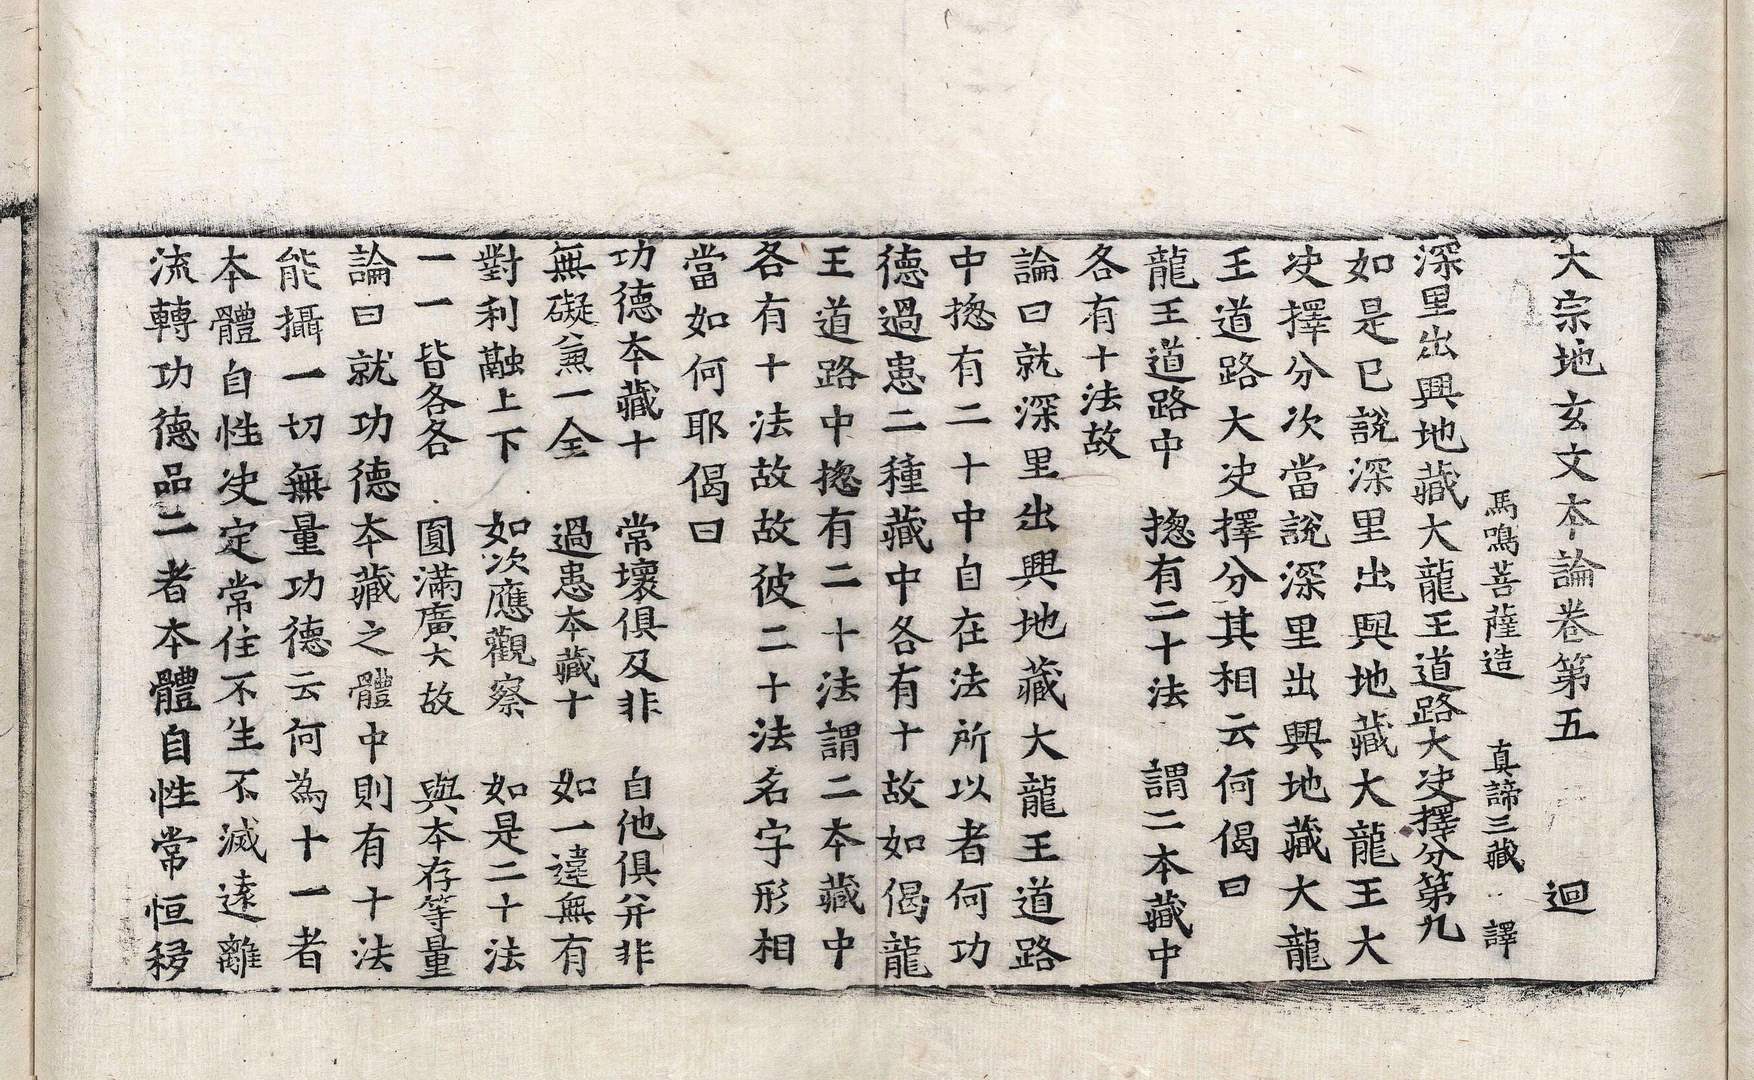 大宗地玄文本論卷第五 迴
馬鳴菩薩造 真諦三藏 譯
深里出興地藏大龍王道路大决擇分第九
如是已說深里出興地藏大龍王大
决擇分次當說深里出興地藏大龍
王道路大决擇分其相云何偈曰
龍王道路中 揔有二十法 謂二本藏中
各有十法故
論曰就深里出興地藏大龍王道路
中揔有二十中自在法所以者何功
德過患二種藏中各有十故如偈龍
王道路中揔有二十法謂二本藏中
各有十法故故彼二十法名字形相
當如何耶偈曰
功德本藏十 常壞俱及非 自他俱并非
無礙兼一全 過患本藏十 如一違無有
對利融上下 如次應觀察 如是二十法
一一皆各各 圓滿廣大故 與本存等量
論曰就功德本藏之體中則有十法
能攝一切無量功德云何為十一者
本體自性决定常住不生不滅遠離
流轉功德品二者本體自性常恒移